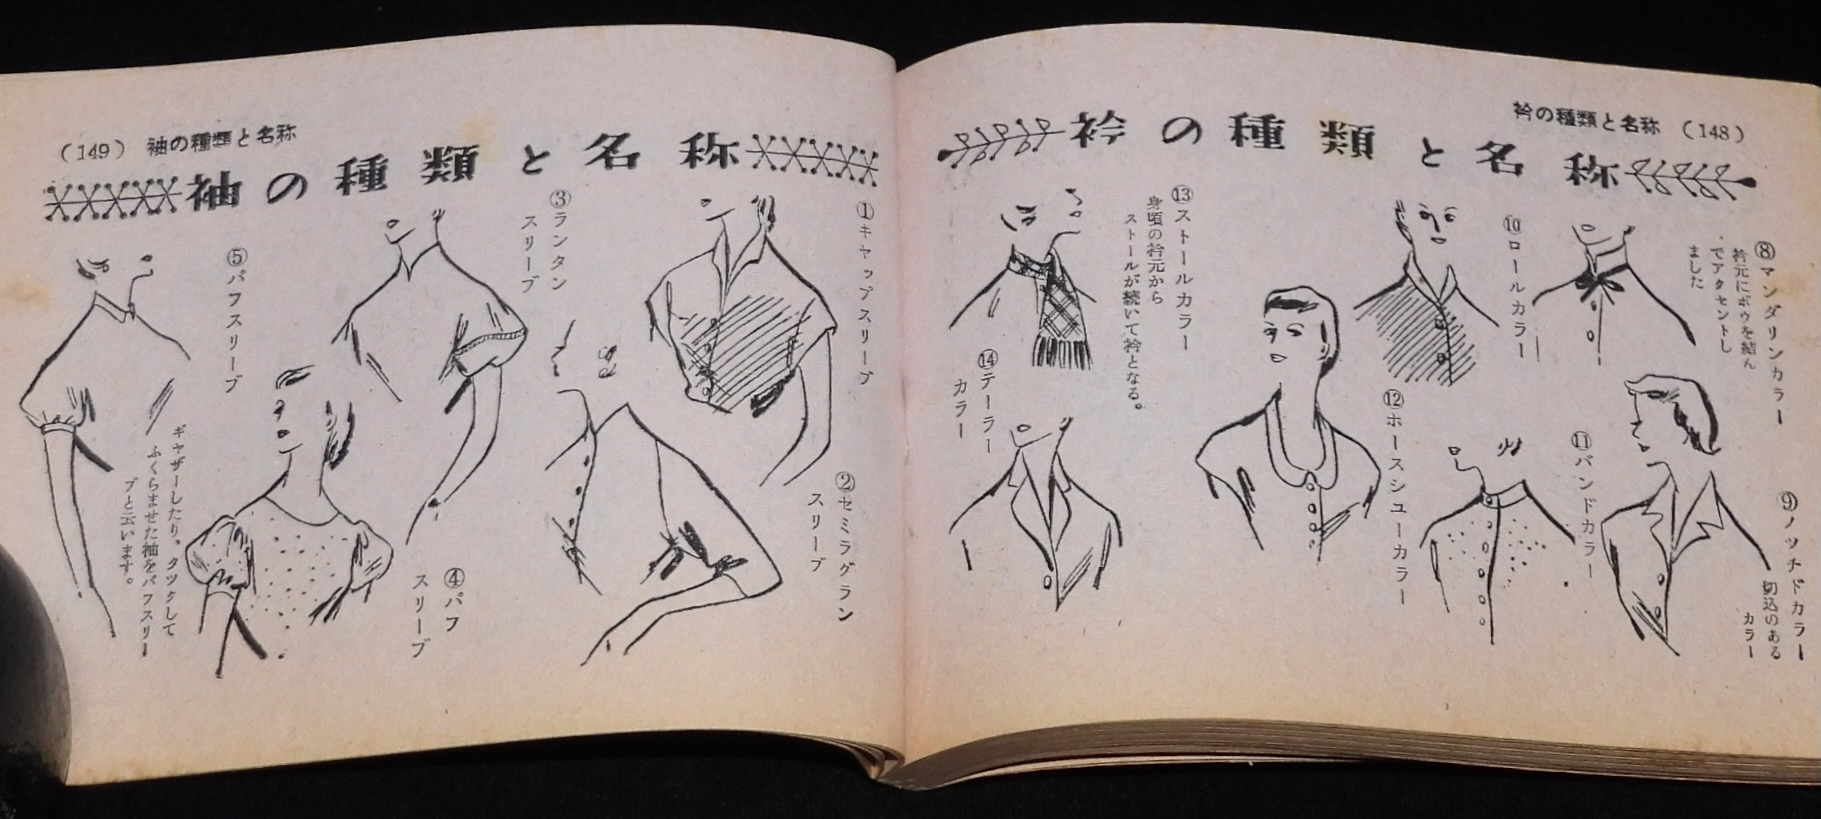 衿の種類と名称 (148)
衿の種類と名称
⑧マンダリンカラー
衿元にボウを結ん
でアクセントし
ました
⑨ノッチドカラー
切込のある
カラー
⑩ロールカラー
⑪バンドカラー
⑫ホースシューカラー
⑬ストールカラー
身頃の衿元から
ストールが続いて衿となる。
⑭テーラー
カラー
(149) 袖の種類と名称
袖の種類と名称
①キャップスリーブ
②セミラグラン
スリーブ
③ランタン
スリーブ
④パフ
スリーブ
⑤パフスリーブ
ギャザーしたり、タックして
ふくらませた袖をパフスリー
ブと云います。